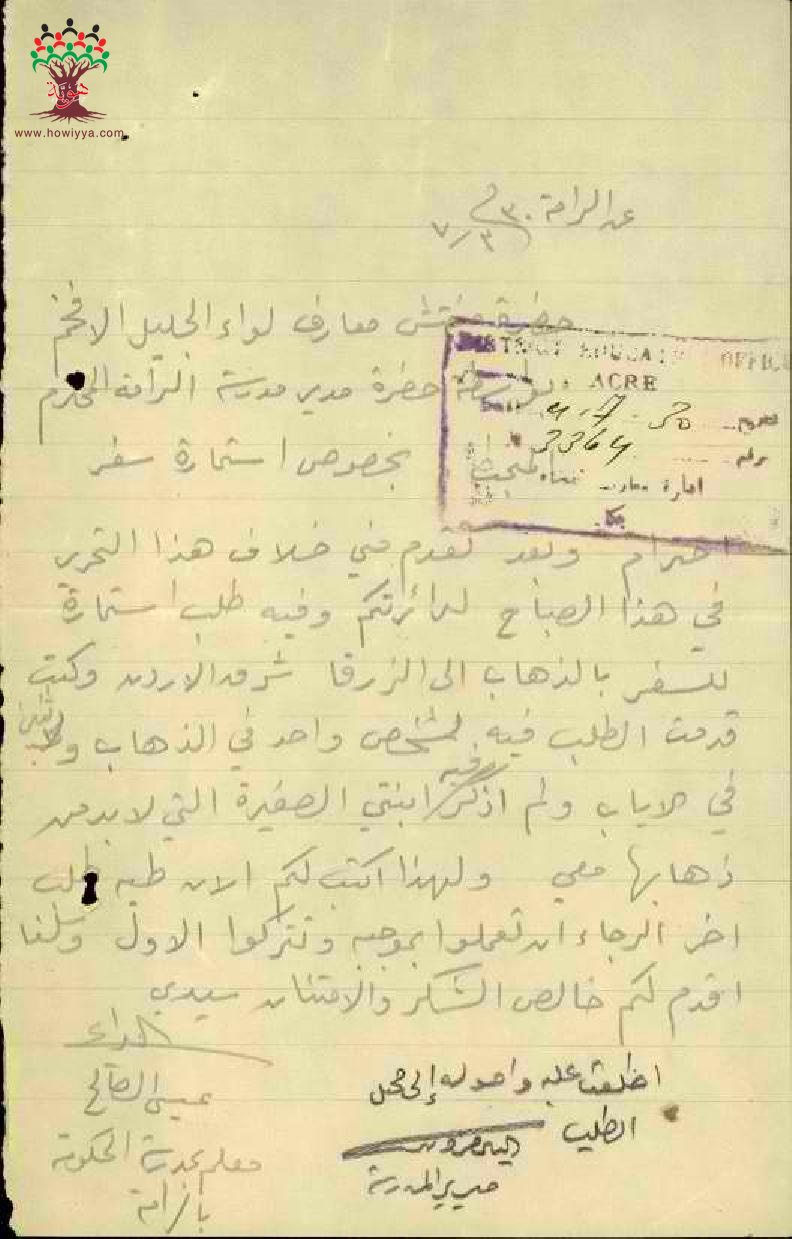 هوية
www.howiyya.com
عن الرامة
٣٠
٣/٧
حضرة مفتش معارف لواء الجليل الافخم
بواسطة حضرة مدير مدرسة الرامة المحترم
بخصوص استمارة سفر
DISTRICT EDUCATION OFFICE
ACRE
Date 4-7-30
3364
احترام وبعد تقدم مني خلاف هذا التحرير
في هذا الصباح لدائرتكم وفيه طلب استمارة
للسفر بالذهاب الى الزرقا شرق الاردن وكنت
قدمت الطلب فيه لشخص واحد في الذهاب
في الاياب ولم اذكر فيه ابنتي الصغيرة التي لا بد من
ذهابها معي ولهذا اكتب لكم الان طيه طلب
اخر الرجاء ان تعملوا بموجبه وتتركوا الاول
اقدم لكم خالص الشكر والامتنان سيدي
الداعي
عيسى الصالح
معلم بمدرسة الحكومة
بالرامة
اطلعت عليه واحوله إلى محل
الطلب
مدير المدرسة